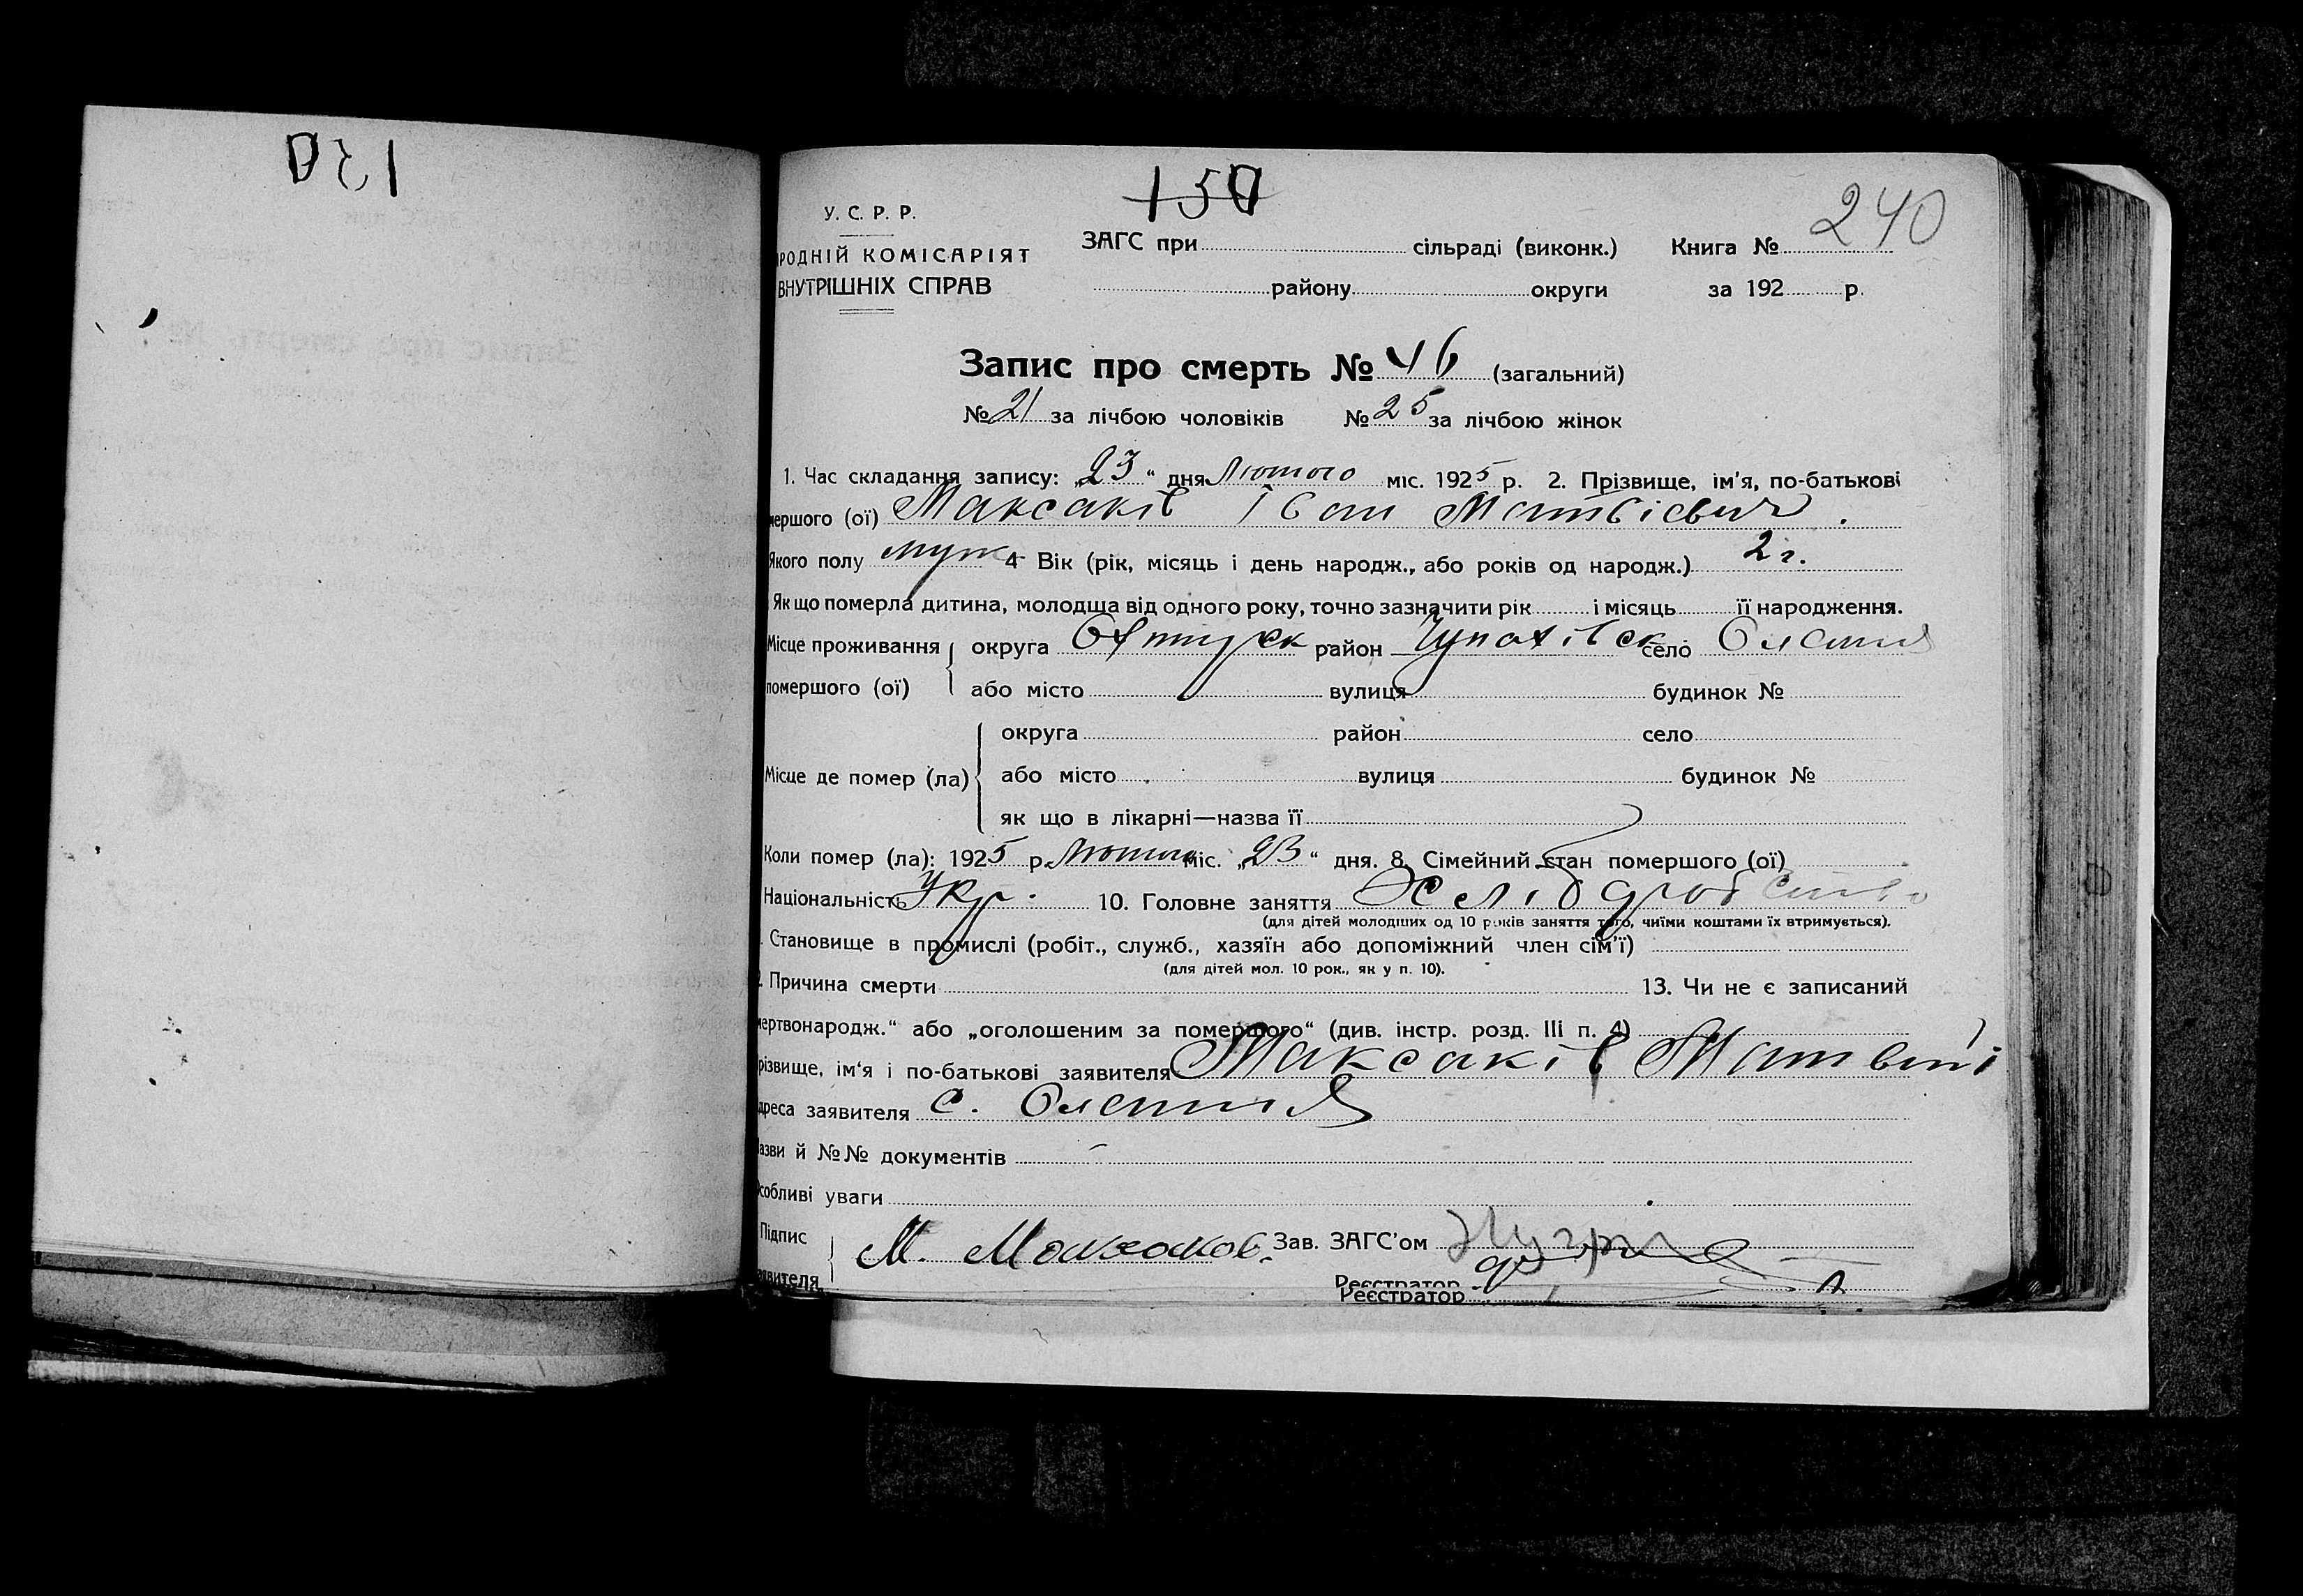 150
240
У. С. Р. Р.
РОДНІЙ КОМІСАРІЯТ
ВНУТРІШНІХ СПРАВ
ЗАГС при сільраді (виконк.) Книга №
району округи за 192 р.
Запис про смерть № 46 (загальний)
№ 21 за лічбою чоловіків № 25 за лічбою жінок
1. Час складання запису: „23“ дня Лютого міс. 1925 р. 2. Прізвище, ім'я, по-батькові
мершого (ої) Максаків Іван Матвієвич.
Якого полу муж 4 Вік (рік, місяць і день народж., або років од народж.) 2 г.
Як що померла дитина, молодша від одного року, точно зазначити рік і місяць її народження.
Місце проживання округа район село
помершого (ої) або місто вулиця будинок №
округа район село
Місце де помер (ла) або місто вулиця будинок №
як що в лікарні—назва її
Коли помер (ла): 1925 р. Лютого міс. „23“ дня. 8. Сімейний стан помершого (ої)
Національність Укр. 10. Головне заняття Хліборобство
(для дітей молодших од 10 років заняття того, чиїми коштами їх втримується).
Становище в промислі (робіт., служб., хазяїн або допоміжний член сім'ї)
(для дітей мол. 10 рок., як у п. 10).
. Причина смерти 13. Чи не є записаний
мертвонародж.“ або „оголошеним за помершого“ (див. інстр. розд. III п. 4)
різвище, ім'я і по-батькові заявителя Максаків Матвій
дреса заявителя с.
азви й №№ документів
собливі уваги
Підпис М. Максаков. Зав. ЗАГС'ом
явителя
Реєстратор
Реєстратор